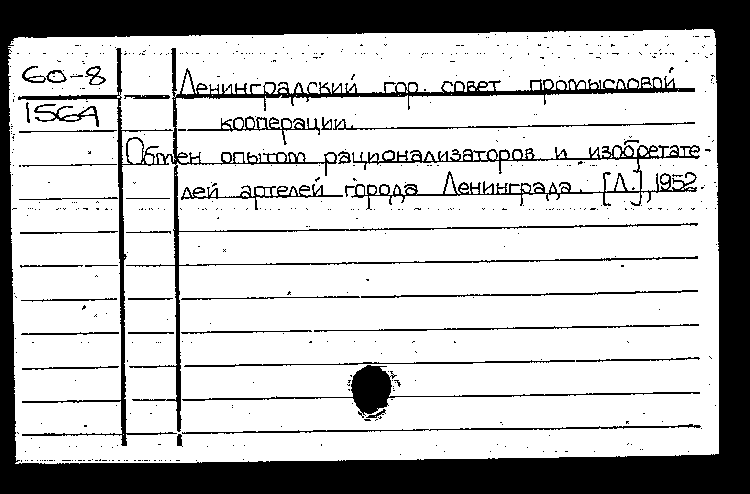 60-8
Ленинградский гор. совет промысловой
1564
кооперации.
Обмен опытом рационализаторов и изобретате-
лей артелей города Ленинграда. [Л.], 1952.